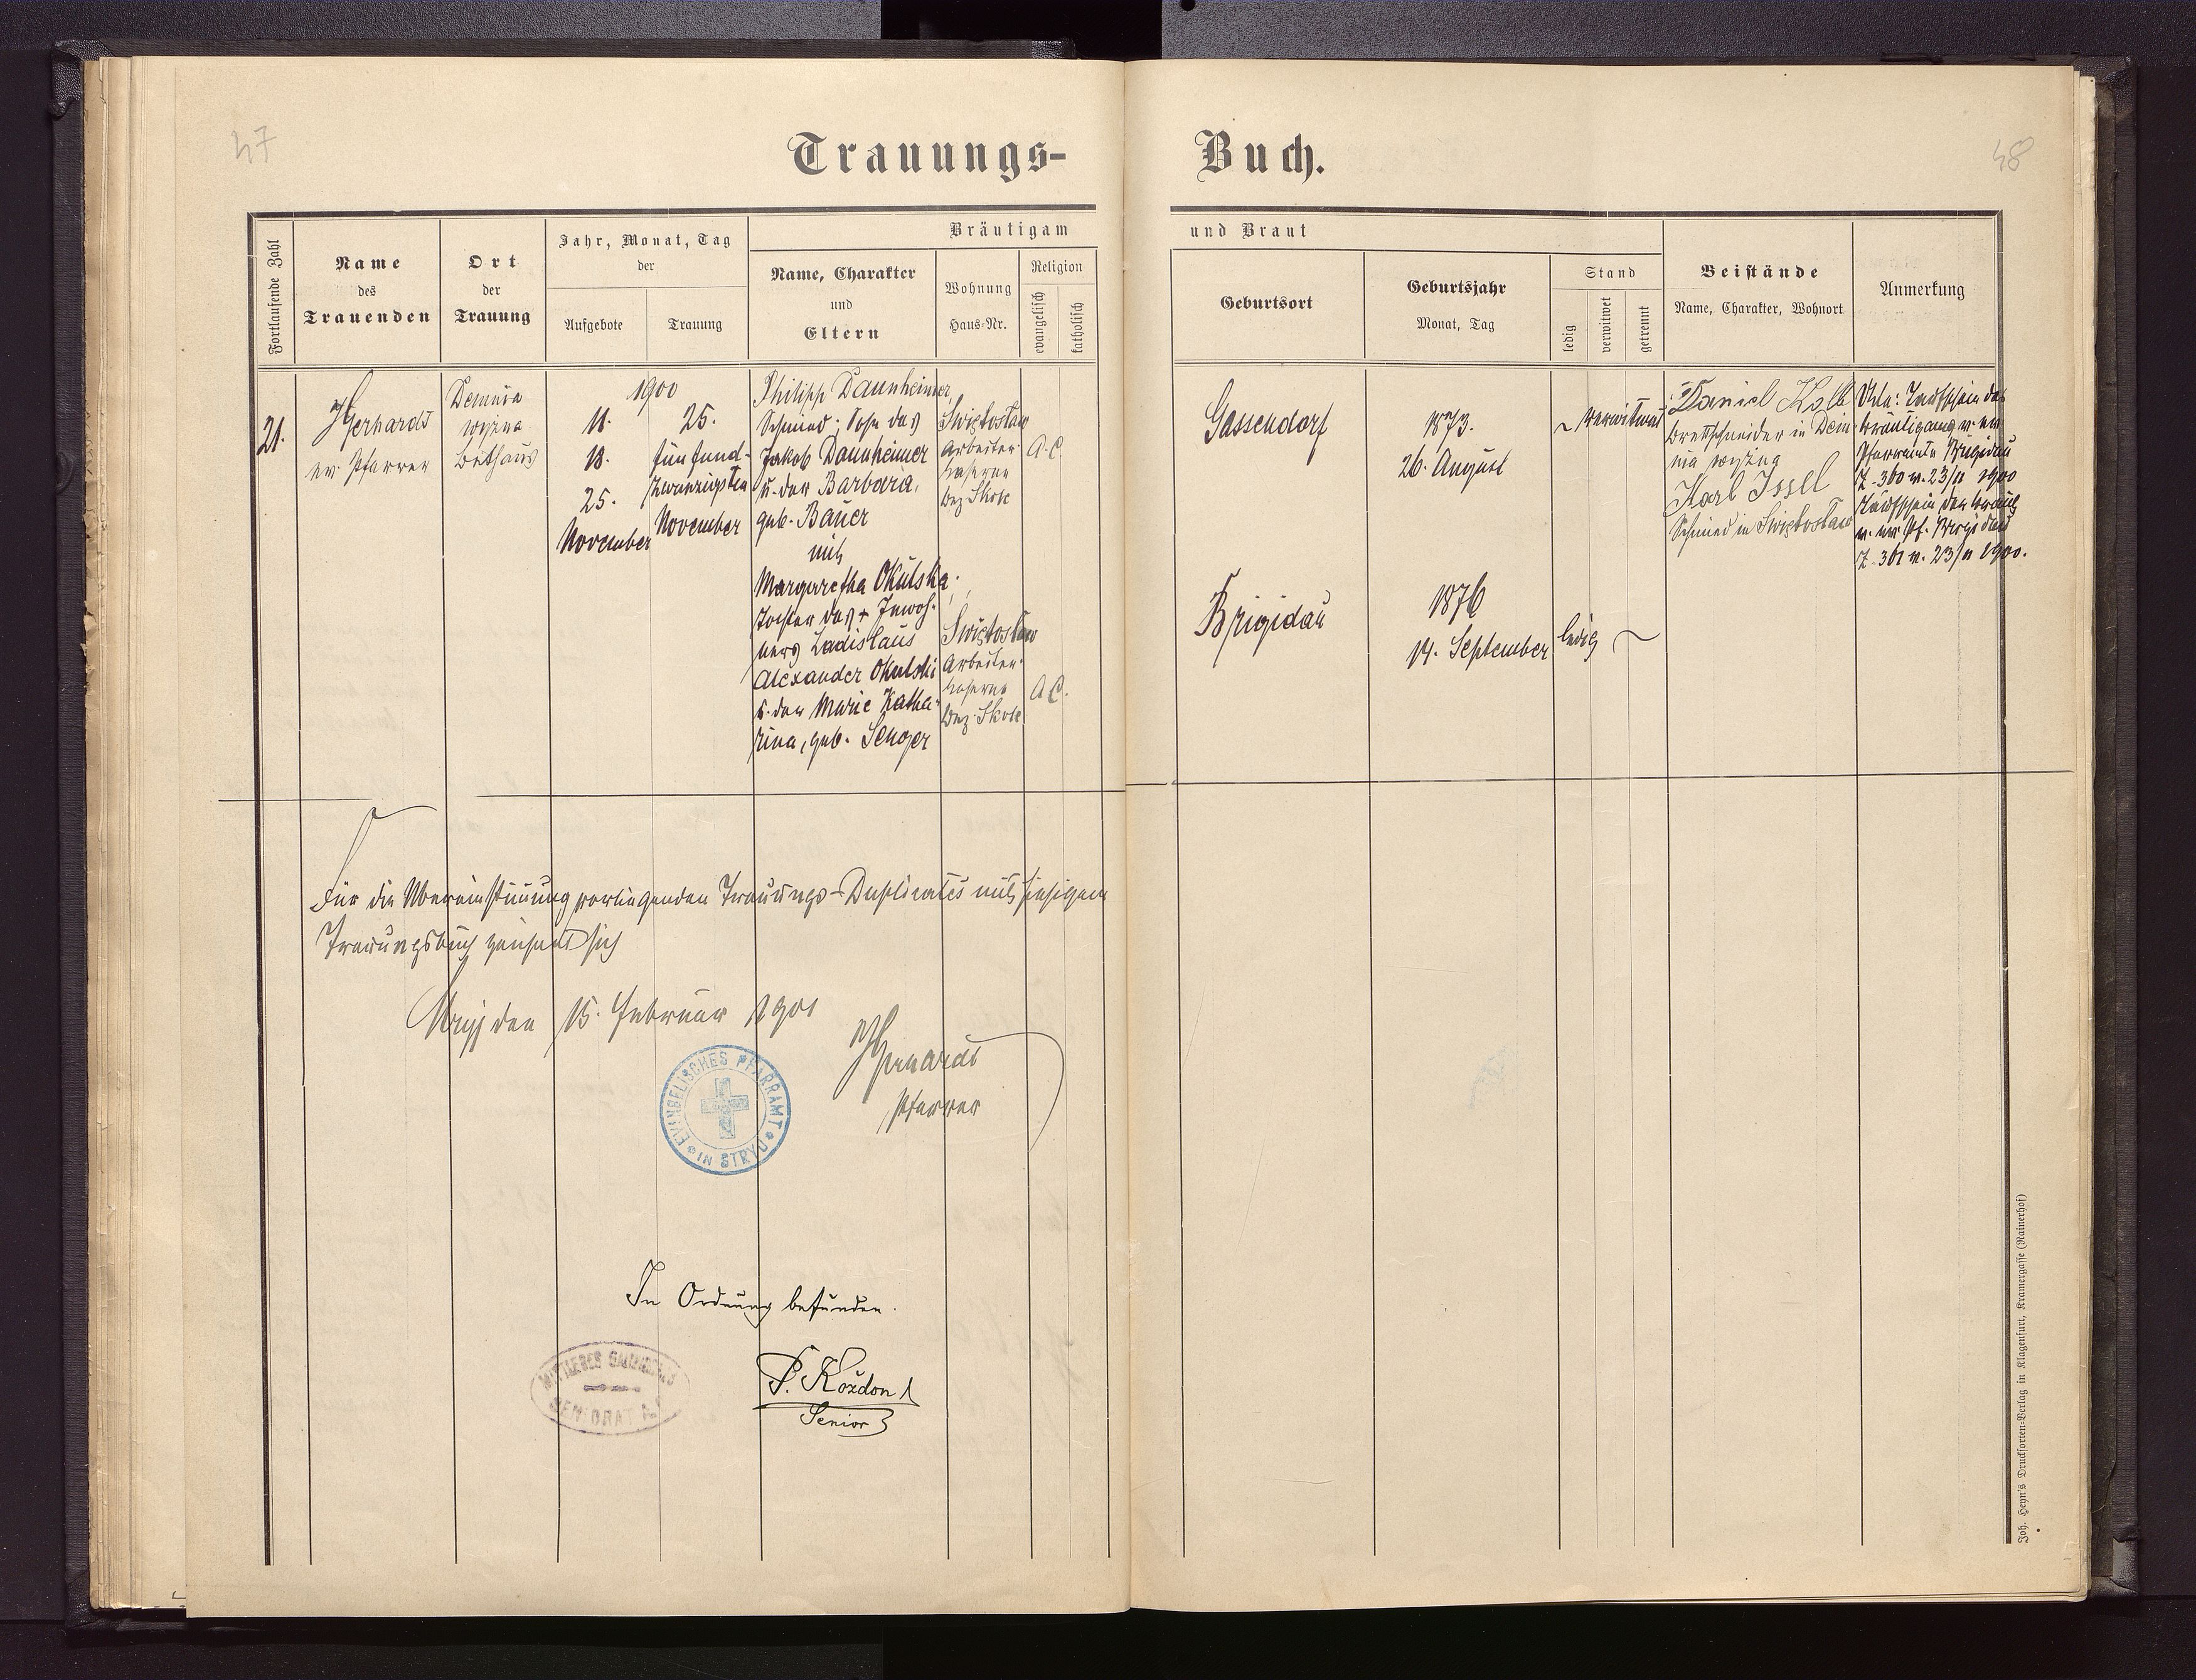 47
48
Trauungs-Buch.
Fortlaufende Zahl
Name des Trauenden
Ort der Trauung
Jahr, Monat, Tag der
Aufgebote
Trauung
Bräutigam und Braut
Name, Charakter und Eltern
Wohnung Haus-Nr.
Religion
evangelisch
katholisch
Geburtsort
Geburtsjahr
Monat, Tag
Stand
ledig
verwitwet
getrennt
Beistände
Name, Charakter, Wohnort
Anmerkung
21.
Gerhardt
ev. Pfarrer
Demnia
wyżna
Bethaus
1900
11.
18.
25.
November
25.
fünfund-
zwanzigsten
November
Philipp Daunheimer,
Schmied, Sohn des
Jakob Daunheimer
u. der Barbara,
geb. Bauer
mit
Margaretha Okulska,
Tochter des + Inwoh-
ners Ladislaus
Alexander Okulski
u. der Marie Katha-
rina, geb. Senger
Swiętosław
Arbeiter-
kaserne
Bez. Skole
A. C.
Swiętosław
Arbeiter-
kaserne
Bez. Skole
A. C.
Gassendorf
1873.
26. August
verwitwet
Brigidau
1876
14. September
ledig
Daniel Kolb
Brettschneider in Dem-
nia wyżna
Karl Issel
Schmied in Swiętosław
Taufschein des
Bräutigams v. ev.
Pfarramte Brigidau
Z. 360 v. 23/11 1900
Taufschein der Braut
v. ev. Pf. Brigidau
Z. 361 v. 23/11 1900.
Für die Übereinstimmung vorliegenden Trauungs-Duplicates mit hiesigem
Trauungsbuch zeichnet sich
Stryj den 15. Februar 1901
Gerhardt
Pfarrer
EVANGELISCHES PFARRAMT
IN STRYJ
In Ordnung befunden.
P. Kozdon
Senior
MITTLERES
SENIORAT A.
Joh. Heyn's Drucksorten-Verlag in Klagenfurt, Kramergasse (Rainerhof)